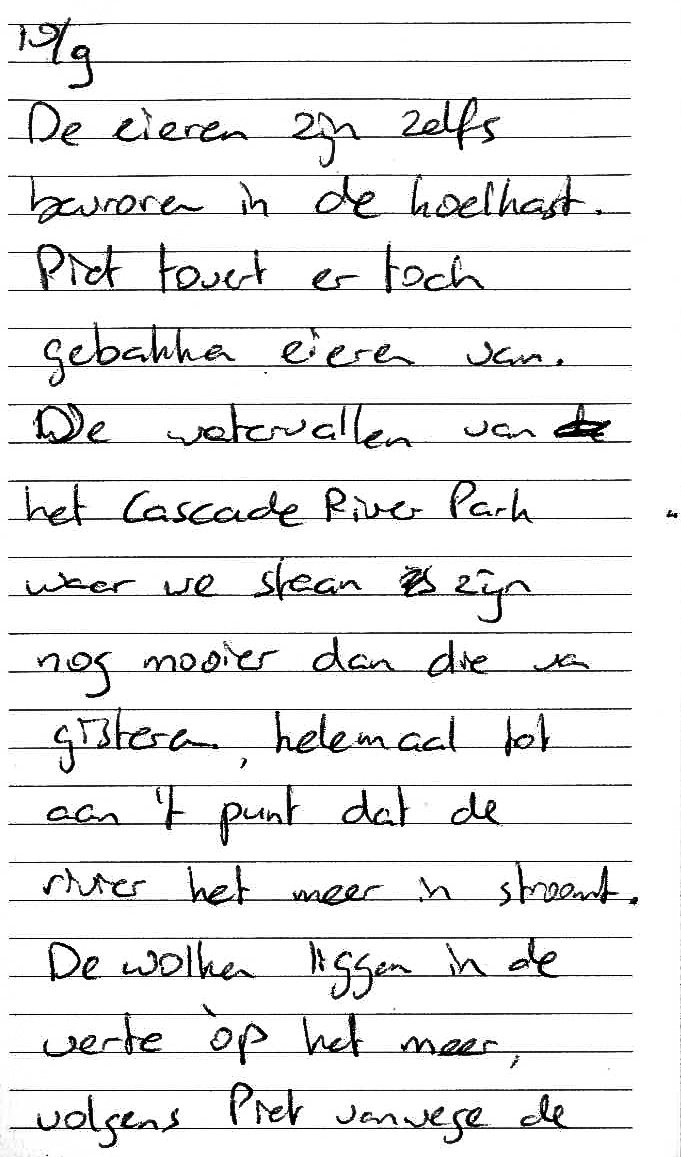 19/9
De eieren zijn zelfs
bevroren in de koelkast.
Piet tovert er toch
gebakken eieren van.
De watervallen van
het Cascade River Park
waar we staan zijn
nog mooier dan die van
gisteren, helemaal tot
aan 't punt dat de
rivier het meer in stroomt.
De wolken liggen in de
verte òp het meer,
volgens Piet vanwege de